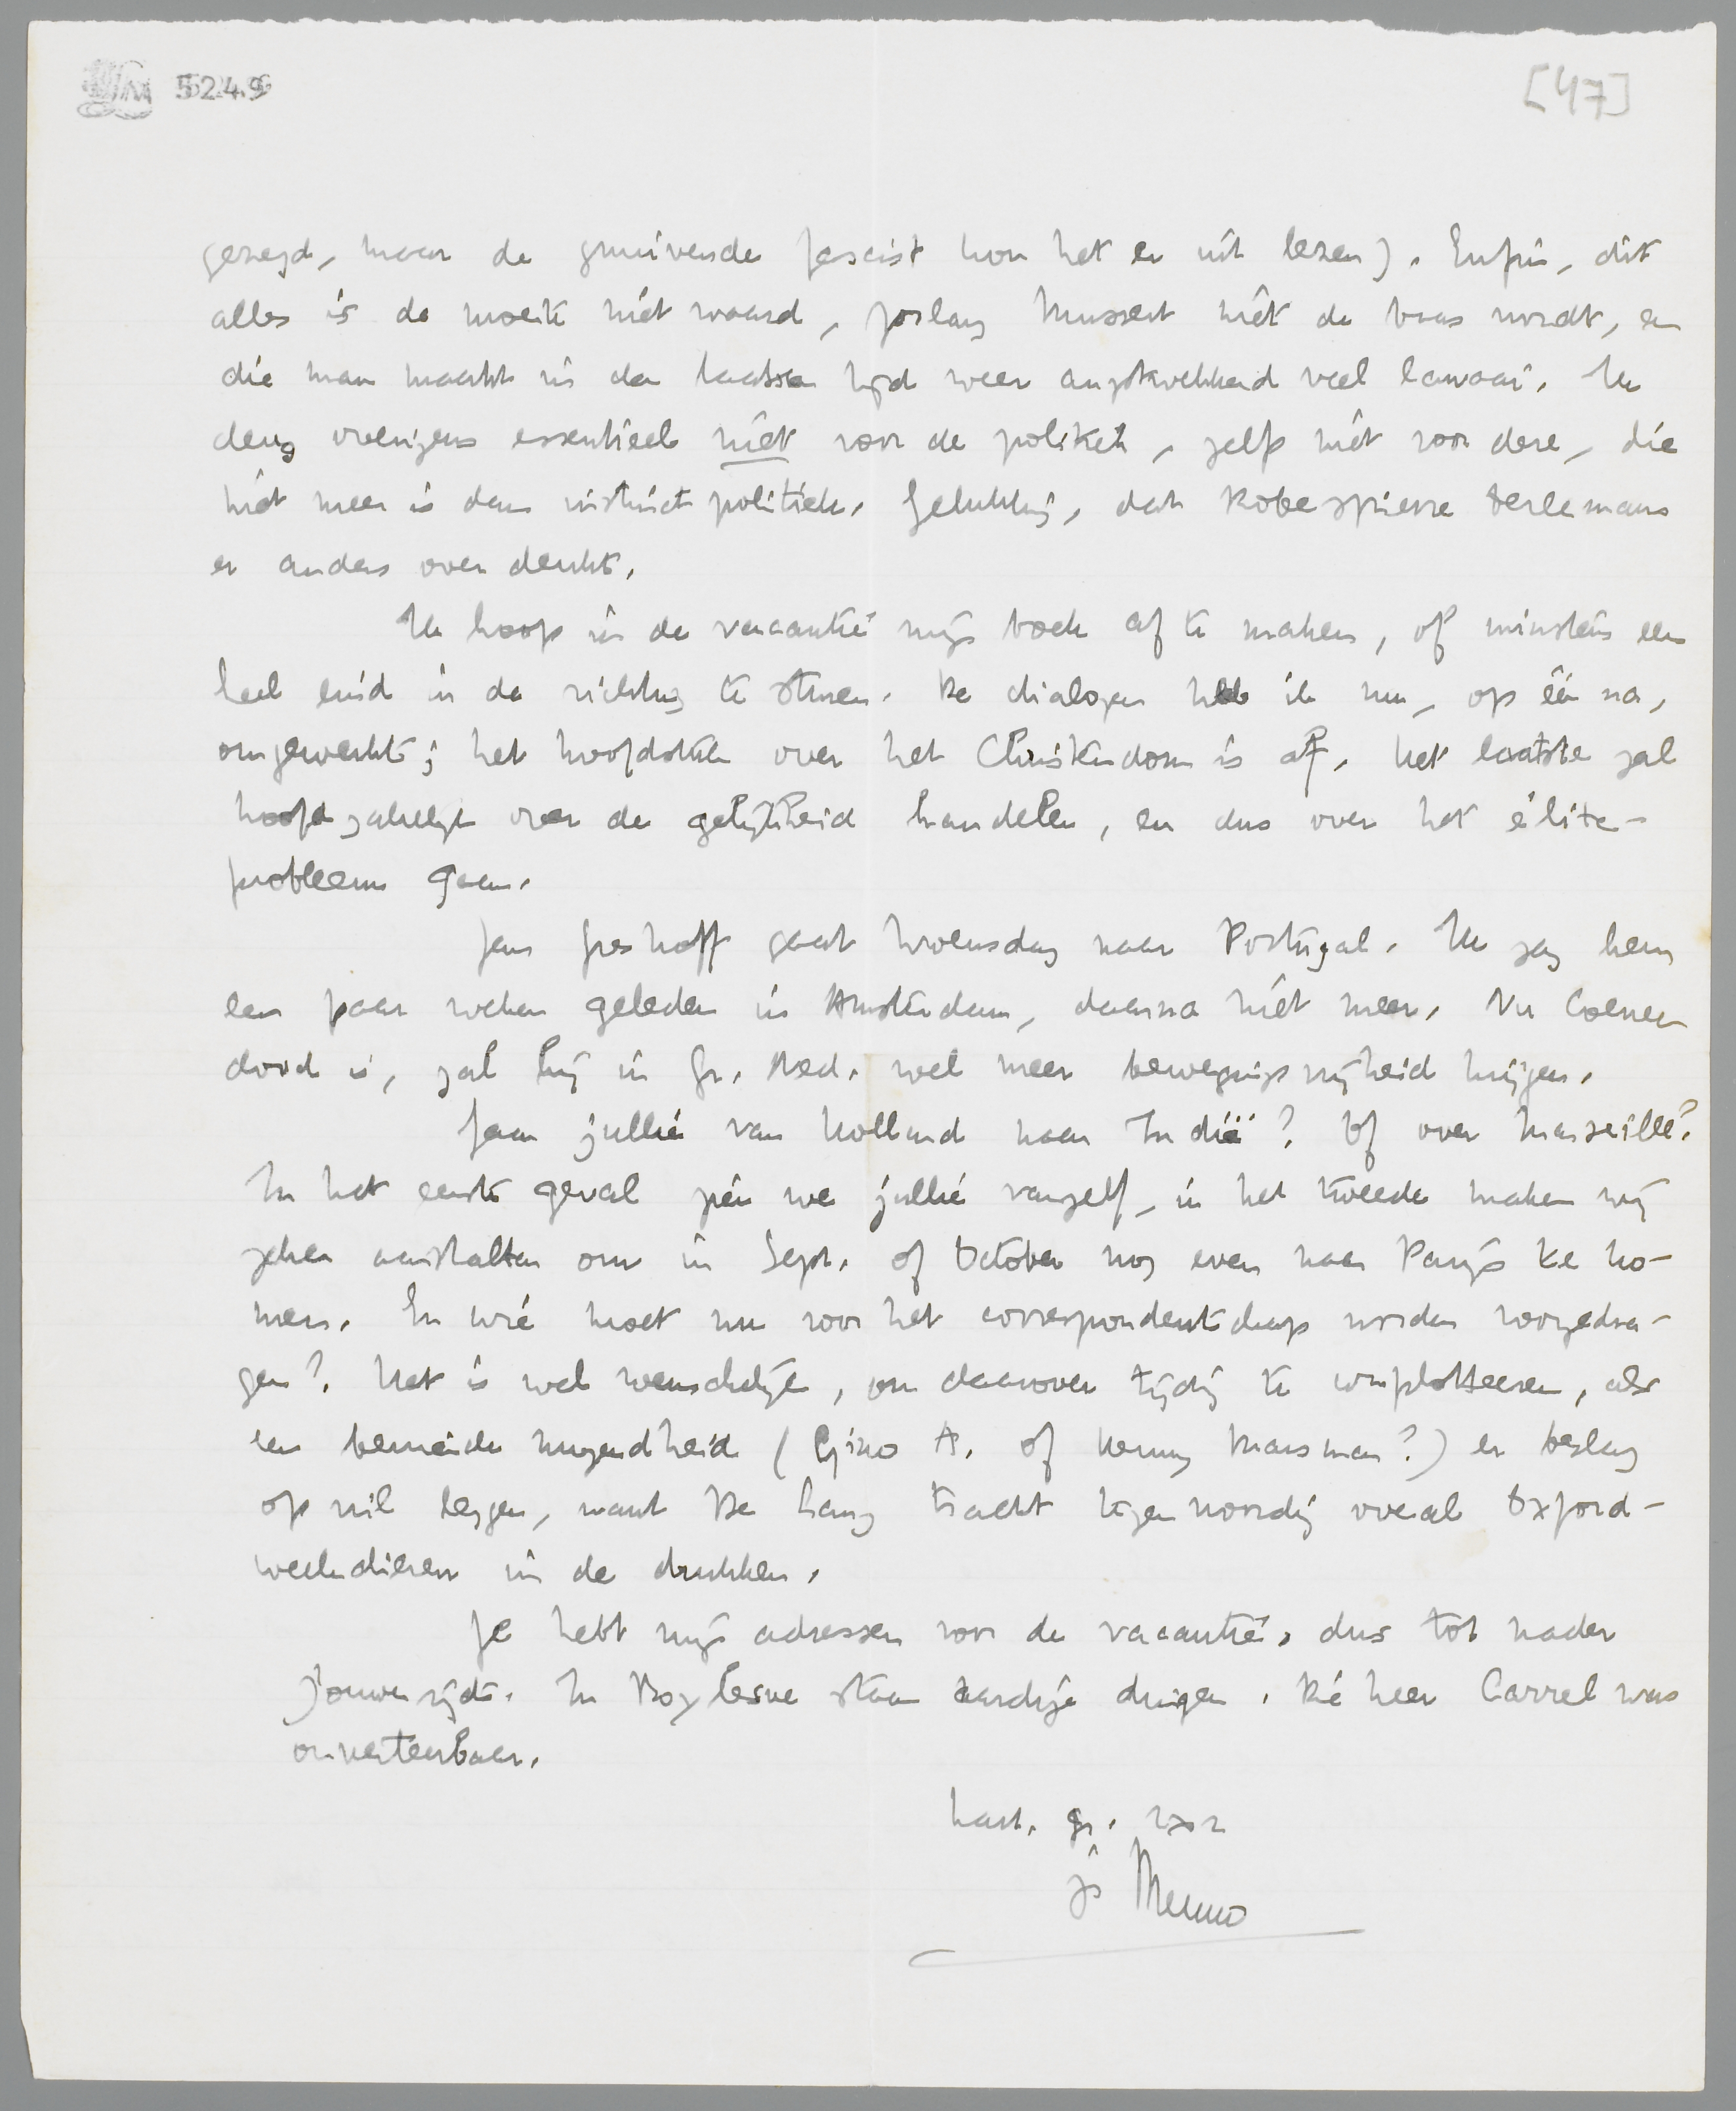 5249
[47]
gezegd, maar de snuivende fascist kon het er uit lezen). Enfin, dit
alles is de moeite niet waard, zoolang Mussert niet de baas wordt, en
die man maakt in den laatsten tijd weer angstwekkend veel lawaai. Ik
deug overigens essentieel niet voor de politiek, zelfs niet voor deze, die
niet meer is dan instinct-politiek. Gelukkig, dat Robespierre Terlemans
er anders over denkt.
Ik hoop in de vacantie mijn boek af te maken, of minstens een
heel eind in de richting te sturen. De dialogen heb ik nu, op één na,
omgewerkt; het hoofdstuk over het Christendom is af. Het laatste zal
hoofdzakelijk over de gelijkheid handelen, en dus over het élite-
probleem gaan.
Jan Greshoff gaat Woensdag naar Portugal. Ik zag hem
een paar weken geleden in Amsterdam, daarna niet meer. Nu Coenen
dood is, zal hij in Gr. Ned. wel meer bewegingsvrijheid krijgen.
Gaan jullie van Holland naar Indië? Of over Marseille?
In het eerste geval zien we jullie vanzelf, in het tweede maken wij
zeker aanstalten om in Sept. of October nog even naar Parijs te ko-
men. En wie moet nu voor het correspondentschap worden voorgedra-
gen? Het is wel wenschelijk, om daarover tijdig te complotteeren, als
een bevriende hugendheid (Gino A. of Henny Marsman?) er beslag
op wil leggen, want De Haag tracht tegenwoordig overal Oxford-
weekdieren in de drukken.
Je hebt mijn adressen voor de vacantie, dus tot nader
jouwerzijds. In Boylesve staan aardige dingen. Die heer Carrel was
onverteerbaar.
hart. gr. 2 x 2
je Menno